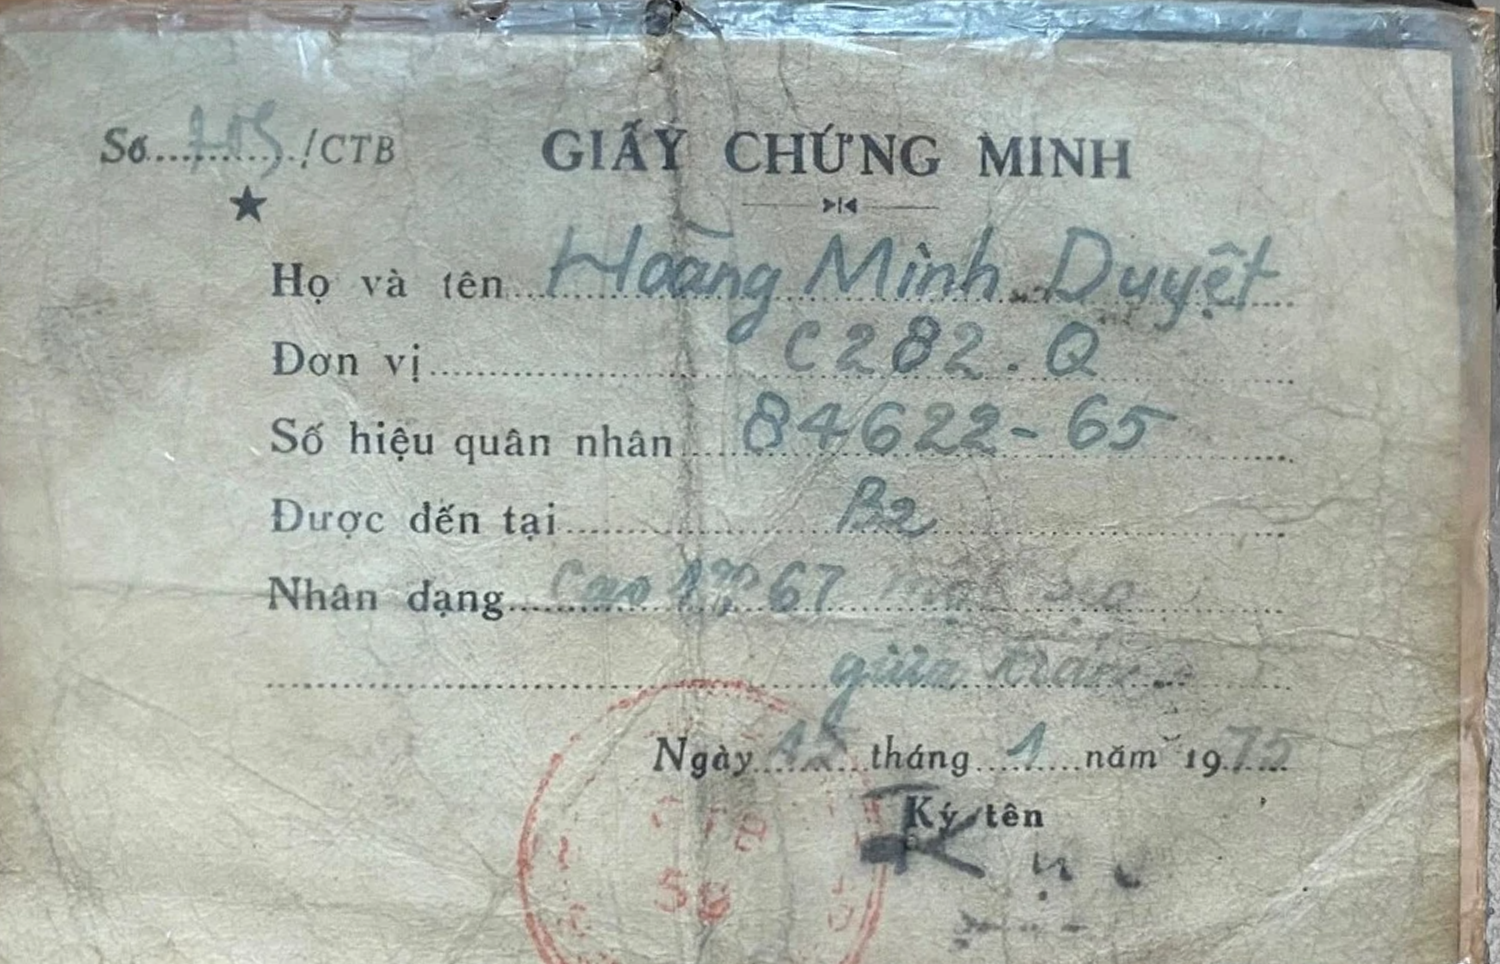 Số 705 /CTB
GIẤY CHỨNG MINH
Họ và tên Hoàng Minh Duyệt
Đơn vị C282.Q
Số hiệu quân nhân 84622-65
Được đến tại B2
Nhân dạng Cao 1m67
giữa trán
Ngày 15 tháng 1 năm 1975
Ký tên
CTB